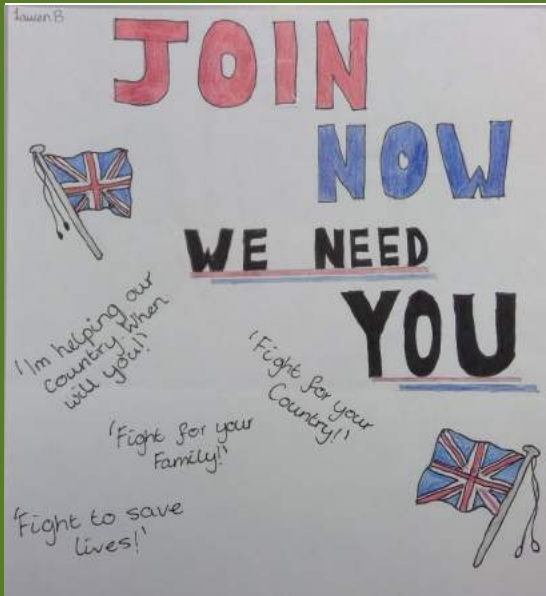 Lauren B
JOIN
NOW
WE NEED
YOU
'Im helping our
country. When
will you!'
'Fight for your
Country!'
'Fight for your
Family!'
'Fight to save
lives!'